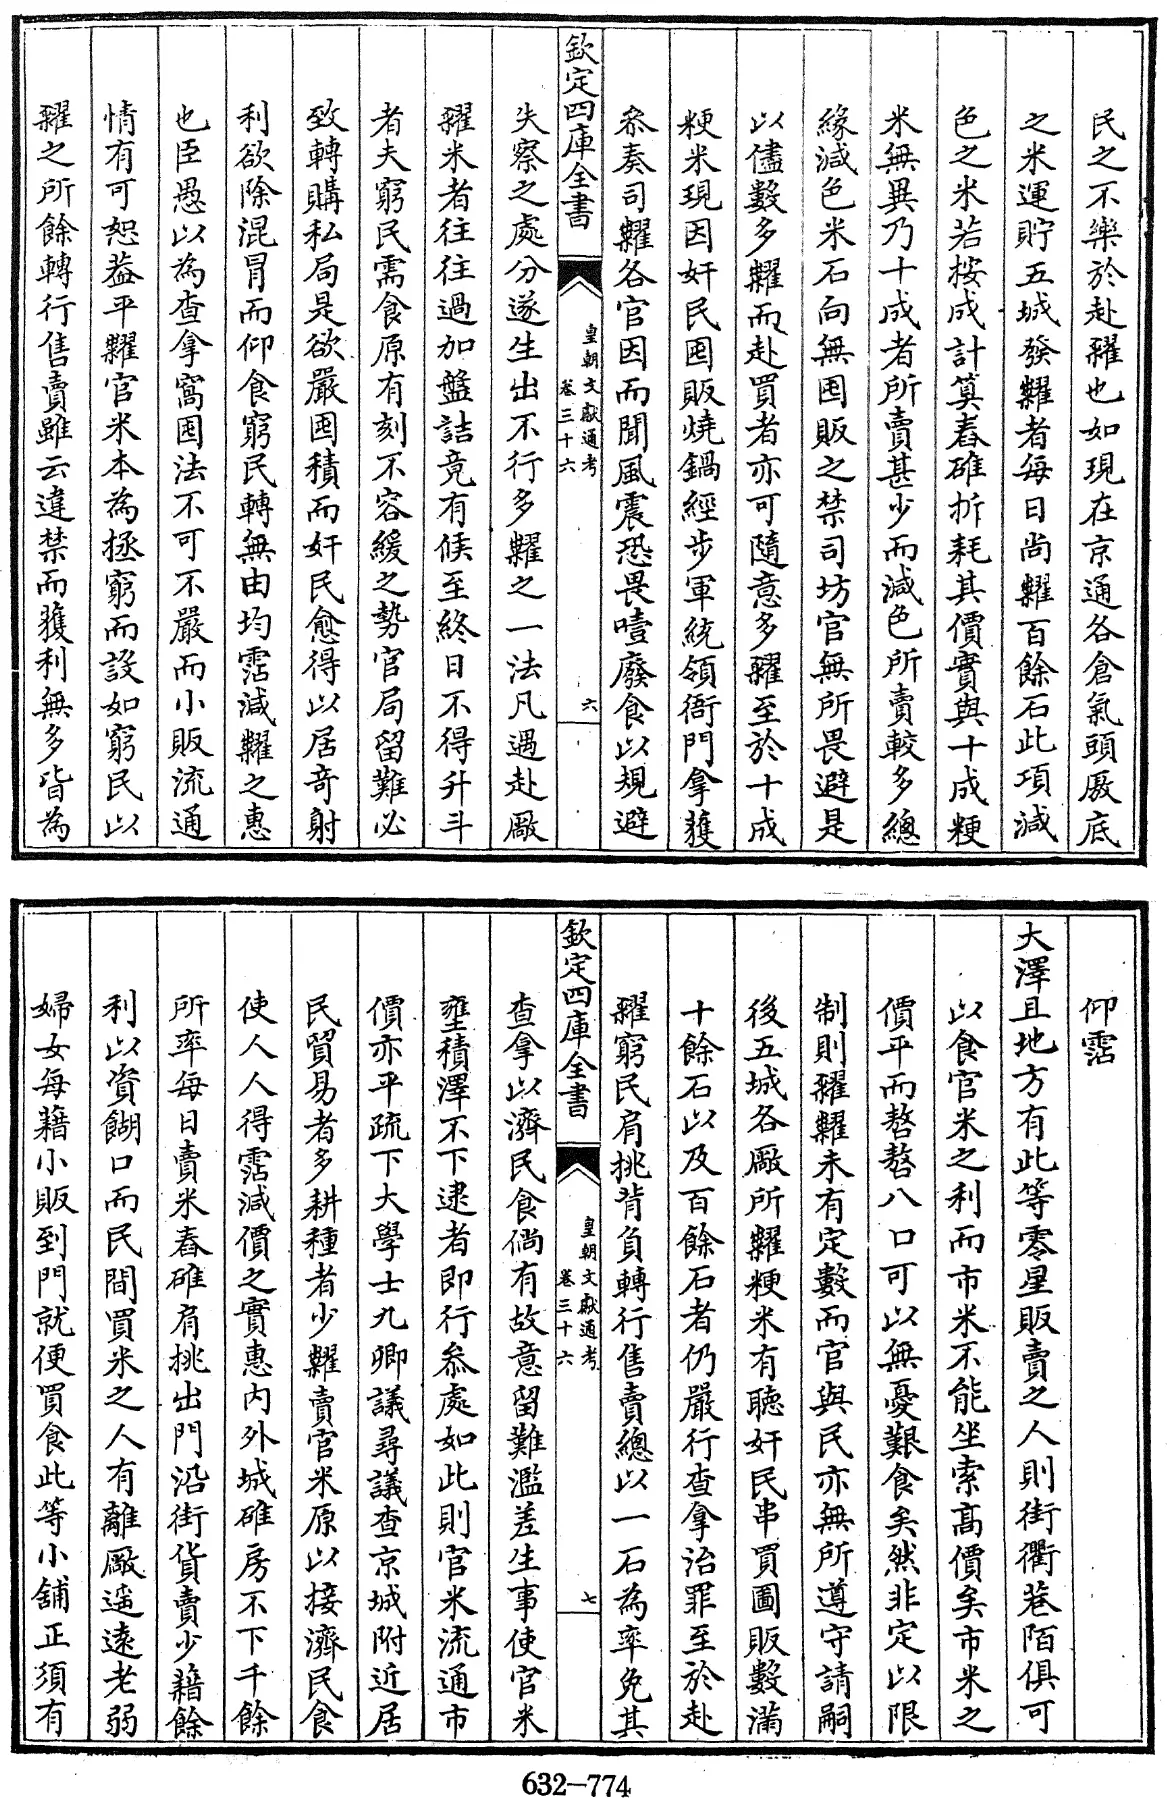 民之不樂於赴糴也如現在京通各倉氣頭廒底
之米運貯五城發糶者每日尚糶百餘石此項減
色之米若按成計算舂碓折耗其價實與十成粳
米無異乃十成者所賣甚少而減色所賣較多總
緣減色米石向無囤販之禁司坊官無所畏避是
以儘數多糶而赴買者亦可隨意多糴至於十成
粳米現因奸民囤販燒鍋經步軍統領衙門拿獲
叅奏司糶各官因而聞風震恐畏噎廢食以規避
欽定四庫全書
皇朝文獻通考
卷三十六
六
失察之處分遂生出不行多糶之一法凡遇赴廠
糴米者往往過加盤詰竟有候至終日不得升斗
者夫窮民需食原有刻不容緩之勢官局留難必
致轉購私局是欲嚴囤積而奸民愈得以居竒射
利欲除混冒而仰食窮民轉無由均霑減糶之惠
也臣愚以為查拿窩囤法不可不嚴而小販流通
情有可恕葢平糶官米本為拯窮而設如窮民以
糴之所餘轉行售賣雖云違禁而獲利無多皆為
仰霑
大澤且地方有此等零星販賣之人則街衢巷陌俱可
以食官米之利而市米不能坐索髙價矣市米之
價平而嗸嗸八口可以無憂艱食矣然非定以限
制則糴糶未有定數而官與民亦無所遵守請嗣
後五城各廠所糶粳米有聽奸民串買圖販數滿
十餘石以及百餘石者仍嚴行查拿治罪至於赴
糴窮民肩挑背負轉行售賣總以一石為率免其
欽定四庫全書
皇朝文獻通考
卷三十六
七
查拿以濟民食倘有故意留難濫差生事使官米
壅積澤不下逮者即行叅處如此則官米流通市
價亦平疏下大學士九卿議尋議查京城附近居
民貿易者多耕種者少糶賣官米原以接濟民食
使人人得霑減價之實惠内外城碓房不下千餘
所率每日賣米舂碓肩挑出門沿街貨賣少藉餘
利以資餬口而民間買米之人有離廠遥遠老弱
婦女每藉小販到門就便買食此等小舖正須有
632-774